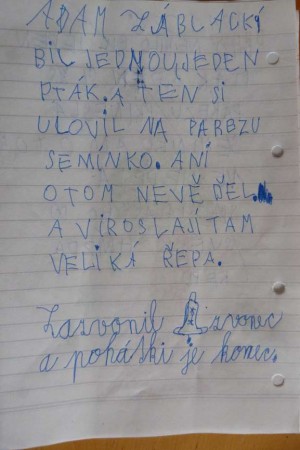 ADAM ZÁBLACKÝ
BIL JEDNOUJEDEN
PTÁK. A TEN SI
ULOVIL NA PAREZU
SEMÍNKO. ANI
OTOM NEVĚĎEL.
A VIROSLAJÍTAM
VELIKÁ ŘEPA.
Zazvonil zvonec
a pohátki je konec.